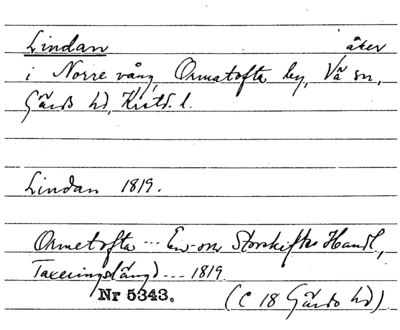 Lindan åker
i Norre vång, Ormatofta by, Vä sn,
Gärds hd, Kristd. l.
Lindan 1819.
Ormetofta --- Enskifte Storskiftes Handl.,
Taxeringslängd --- 1819.
Nr 5343. (C 18 Gärds hd)